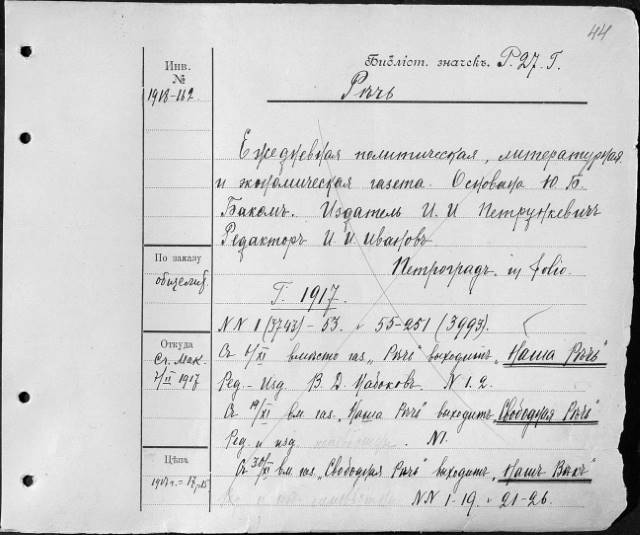 44
Библіот. значекъ. Р. 27. Г.
Рѣчь
Инв.
№
1918-162.
Ежедневная политическая, литературная
и экономическая газета. Основана Ю. Б.
Бакомъ. Издатель И. И. Петрункевичъ
Редакторъ И. И. Ивановъ.
Петроградъ. in folio.
По заказу
Г. 1917.
NN 1 (3743) - 53. 55-251 (3993).
Откуда
1917
Съ вмѣсто газ. „Рѣчь" выходитъ „Наша Рѣчь"
Ред. - Изд. В. Д. Набоковъ. N 1. 2.
Съ 19/XI вм. газ. „Наша Рѣчь" выходитъ „Свободная Рѣчь"
Ред. и изд. N1.
Цѣна
Съ 30/XI вм. газ. „Свободная Рѣчь" выходитъ „Нашъ Вѣкъ"
NN 1-19. 21-26.